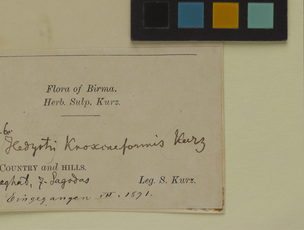 Flora of Birma.
Herb. Sulp. Kurz.
Hedyotis Knoxiaeformis Kurz
COUNTRY and HILLS.
7. Pagodas Leg. S. Kurz.
Eingegangen 1871.